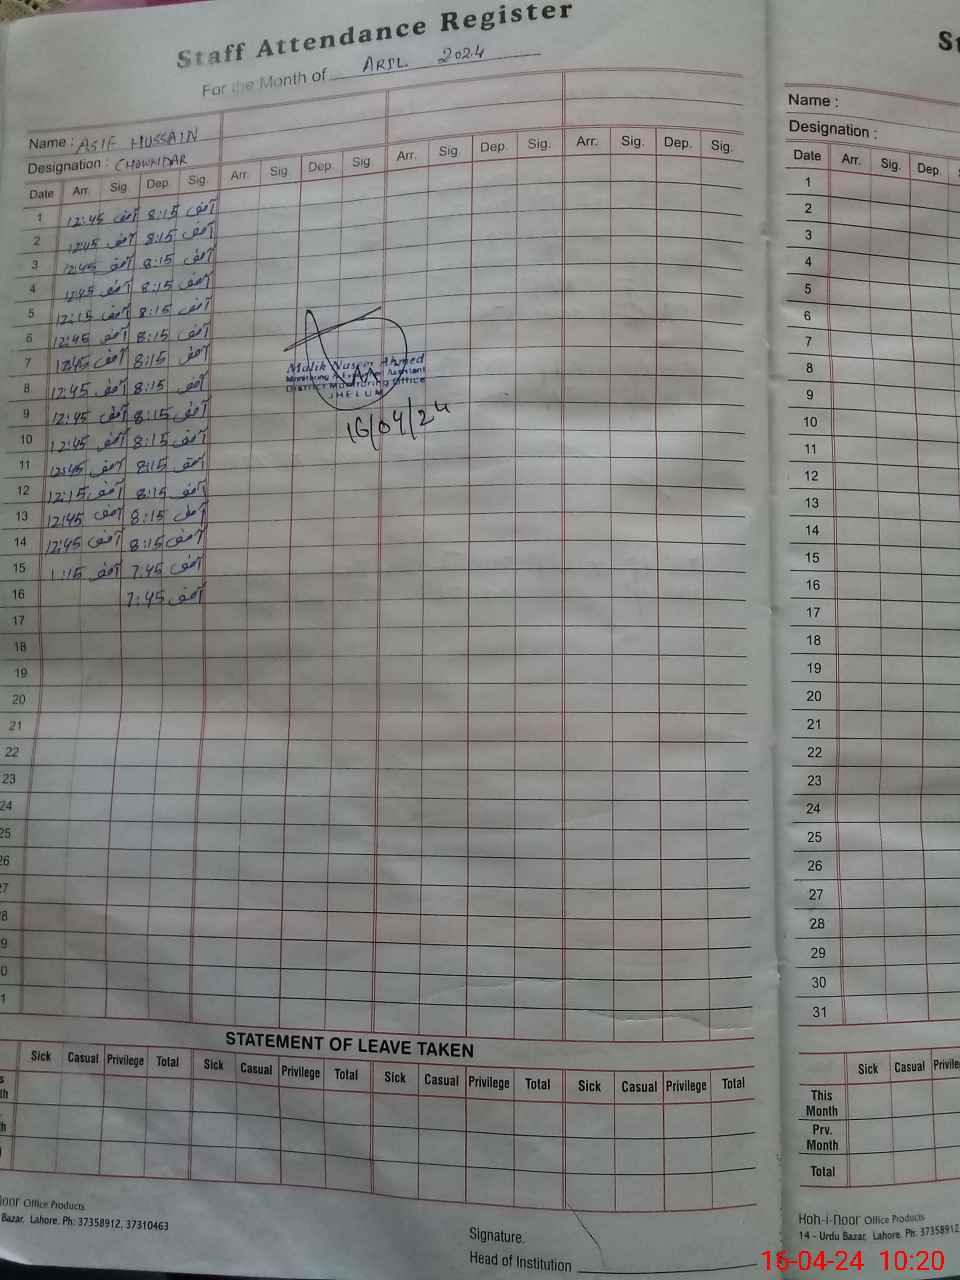 Staff Attendance Register
For the Month of ARIL 2024
Name : ASIF HUSSAIN
Designation : CHOWKIDAR
Date Arr. Sig. Dep. Sig. Arr. Sig. Dep. Sig. Arr. Sig. Dep. Sig. Arr. Sig. Dep. Sig.
1 12:45 آصف 8:15 آصف
2 12:45 آصف 8:15 آصف
3 12:45 آصف 8:15 آصف
4 12:45 آصف 8:15 آصف
5 12:15 آصف 8:15 آصف
6 12:45 آصف 8:15 آصف
7 12:45 آصف 8:15 آصف
8 12:45 آصف 8:15 آصف
9 12:45 آصف 8:15 آصف
10 12:45 آصف 8:15 آصف
11 12:45 آصف 8:15 آصف
12 12:15 آصف 8:15 آصف
13 12:45 آصف 8:15 آصف
14 12:45 آصف 8:15 آصف
15 1:15 آصف 7:45 آصف
16 7:45 آصف
17
18
19
20
21
22
23
24
25
26
27
8
9
0
1
Malik Naseer Ahmed
Monitoring & Evaluation Assistant
District Monitoring Office
JHELUM
16/04/24
STATEMENT OF LEAVE TAKEN
Sick Casual Privilege Total Sick Casual Privilege Total Sick Casual Privilege Total Sick Casual Privilege Total
noor Office Products
Bazar, Lahore. Ph: 37358912, 37310463
Signature.
Head of Institution
St
Name :
Designation :
Date Arr. Sig. Dep.
1
2
3
4
5
6
7
8
9
10
11
12
13
14
15
16
17
18
19
20
21
22
23
24
25
26
27
28
29
30
31
Sick Casual Privile
This
Month
Prv.
Month
Total
Koh-i-noor Office Products
14 - Urdu Bazar, Lahore. Ph. 37358912
16-04-24 10:20